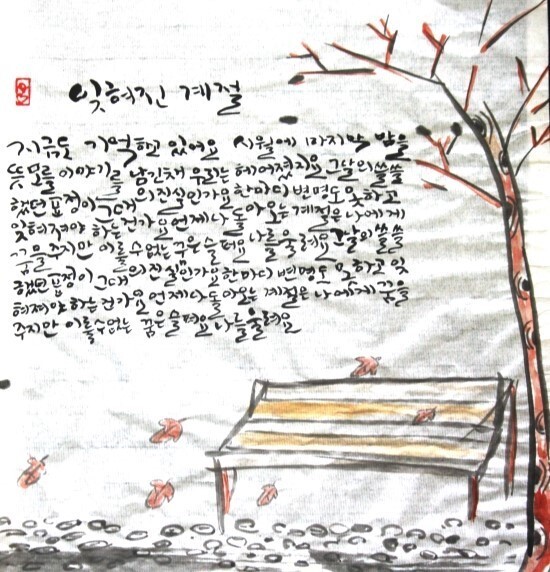 잊혀진 계절
지금도 기억하고 있어요 시월에 마지막 밤을
뜻모를 이야기를 남긴채 우리는 헤어졌지요 그날의 쓸쓸
했던 표정이 그대의 진실인가요 한마디 변명도 못하고
잊혀져야 하는건가요 언제나 돌아오는 계절은 나에게
꿈을 주지만 이룰수없는 꿈은 슬퍼요 나를 울려요 그날의 쓸쓸
했던 표정이 그대의 진실인가요 한마디 변명도 못하고 잊
혀져야 하는건가요 언제나 돌아오는 계절은 나에게 꿈을
주지만 이룰수없는 꿈은 슬퍼요 나를 울려요